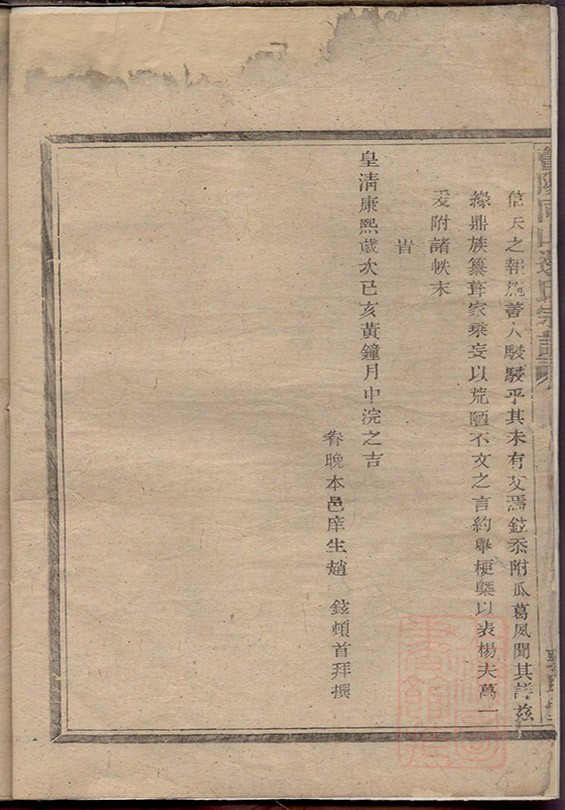 信天之報施善人駸駸乎其未有艾焉鉉忝附瓜葛夙聞其詳兹
緣鼎族纂葺家乘妄以荒陋不文之言約舉梗槩以表楊夫萬一
爰附諸帙末
旹
皇清康熙歲次己亥黃鐘月中浣之吉
眷晚本邑庠生趙 鉉頓首拜撰